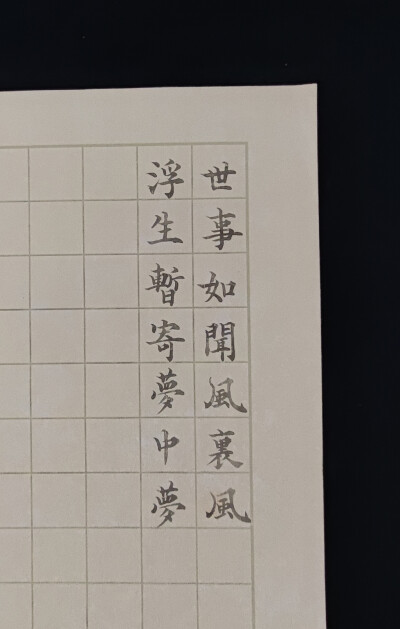 世事如聞風裏風
浮生暫寄夢中夢